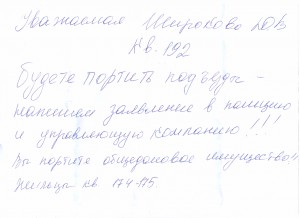 Уважаемая Широкова Ю.В
кв. 192
будете портить подъезд -
напишем заявление в полицию
и управляющую компанию!!!
Вы портите общедомовое имущество!!
Жильцы кв 174-175.